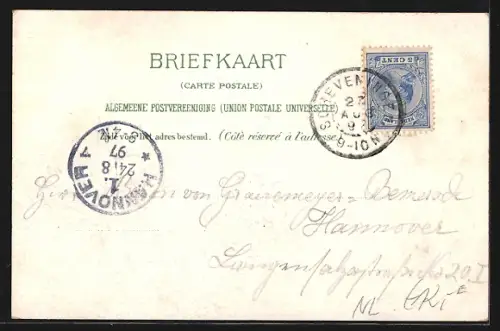 BRIEFKAART
(CARTE POSTALE)
ALGEMEENE POSTVEREENIGING (UNION POSTALE UNIVERSELLE)
Zijde voor het adres bestemd. (Côté réservé à l'adresse)
5 CENT
SCHEVENINGEN
AUG
9-10N
HANNOVER 1
24/8
97
Herrn von Granemeyer-Bemerode
Hannover
Langensalzastraße No 20 I
NL